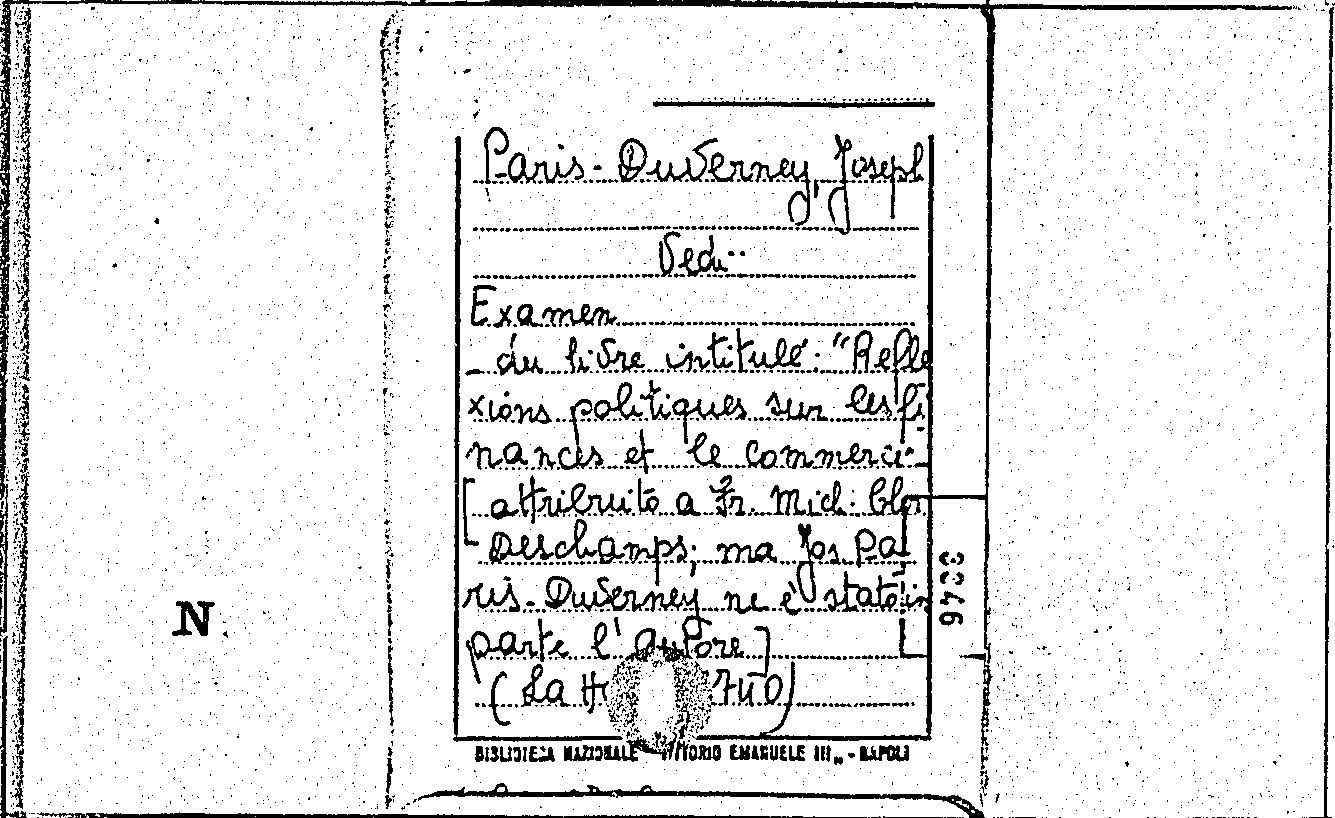 Paris-Duverney, Joseph
Vedi:
Examen
_ du livre intitulé: "Refle
xions politiques sur les fi
nances et le commerce
[attribuito a Fr. Mich. Chr.
Deschamps; ma Jos. Pa
ris-Duverney ne è stato in
parte l'autore]
(La H 740)
N
3346
BIBLIOTECA NAZIONALE VITTORIO EMANUELE III„ - NAPOLI